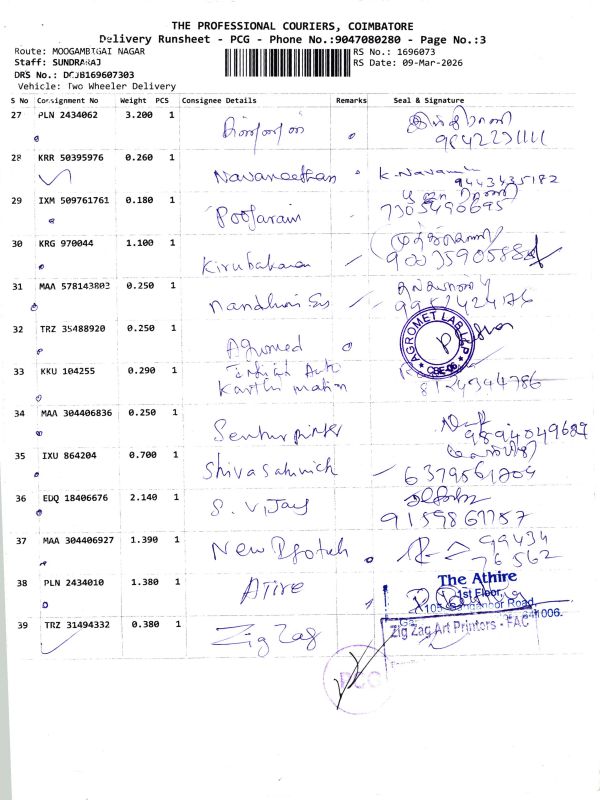 THE PROFESSIONAL COURIERS, COIMBATORE
Delivery Runsheet - PCG - Phone No.:9047080280 - Page No.:3
Route: MOOGAMBIGAI NAGAR RS No.: 1696073
Staff: SUNDRARAJ RS Date: 09-Mar-2026
DRS No.: DCJB169607303
Vehicle: Two Wheeler Delivery
S No Consignment No Weight PCS Consignee Details Remarks Seal & Signature
27 PLN 2434062 3.200 1
28 KRR 50395976 0.260 1 Navaneethan K. Navanee
9443435182
29 IXM 509761761 0.180 1 Poojaram
7305490695
30 KRG 970044 1.100 1 Kirubakaran
31 MAA 578143803 0.250 1 Nandhini
9952424176
32 TRZ 35488920 0.250 1 Agromed AGROMET LAB LLP CBE-06
33 KKU 104255 0.290 1 Auto
Karthi mation 8124344786
34 MAA 304406836 0.250 1 Senthur
9894049687
35 IXU 864204 0.700 1 Shiva
36 EDQ 18406676 2.140 1 S. Vijay
37 MAA 304406927 1.390 1 New 99434
76562
38 PLN 2434010 1.380 1 Atire The Athire
1st Floor,
Road,
641006.
39 TRZ 31494332 0.380 1 Zig Zag Zig Zag Art Printers - FAC
PCG